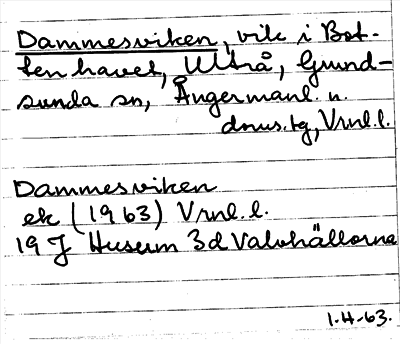 Dammesviken, vik i Bot-
tenhavet, Ultrå, Grund-
sunda sn, Ångermanl. n.
doms.tg, Vrnl.l.
Dammesviken
ek (1963) Vrnl.l.
19 J Husum 3d Valvhällorna
1.H-63.